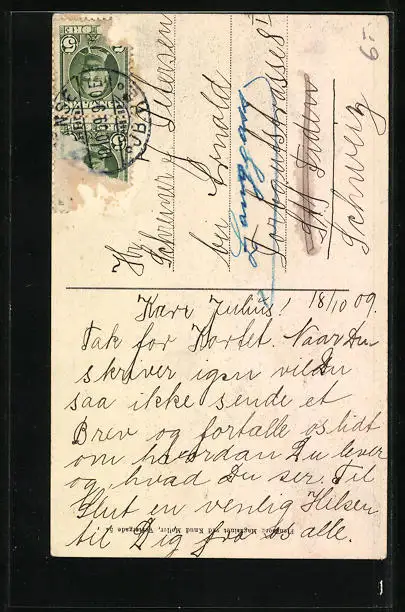 Hr.
Schreiner J. Petersen
bei Arnold
Langgass
8I
St. Fiden
Schweiz
6-
Kære Julius! 18/10 09.
Tak for Kortet. Naar Du
skriver igen vil Du
saa ikke sende et
Brev og fortælle os lidt
om hvordan Du lever
og, hvad Du ser. Til
Slut en venlig Hilsen
til Dig fra os alle.
Magasinet ved Knud Møller, Vestergade